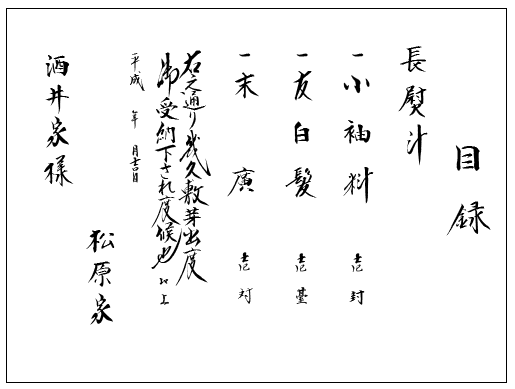 目録
長熨斗
一小袖料 壱封
一友白髪 壱臺
一末廣 壱対
右之通り幾久敷芽出度
御受納下され度候也 以上
平成 年 月吉日
松原家
酒井家様